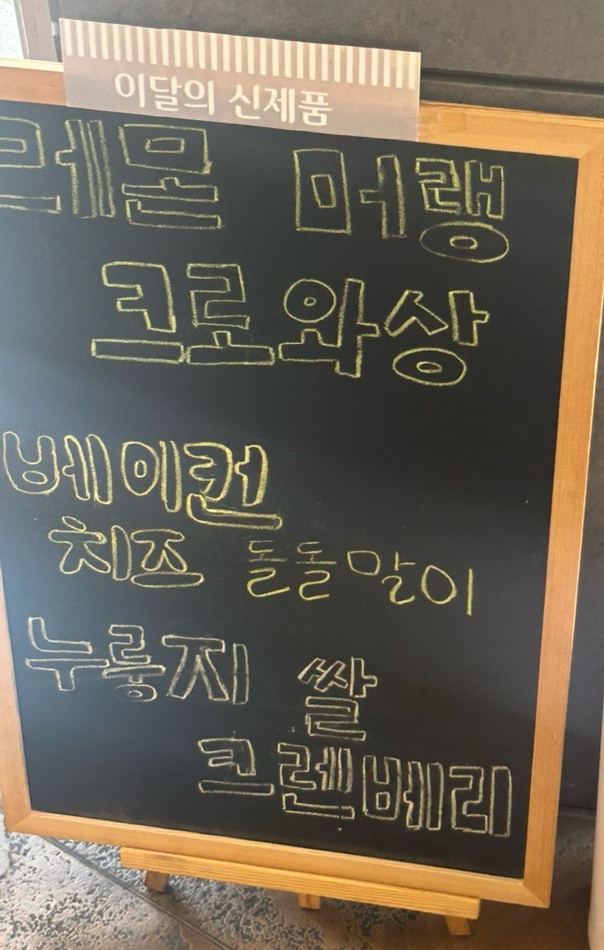 이달의 신제품
레몬 머랭
크로와상
베이컨
치즈 돌돌말이
누룽지 쌀
크렌베리